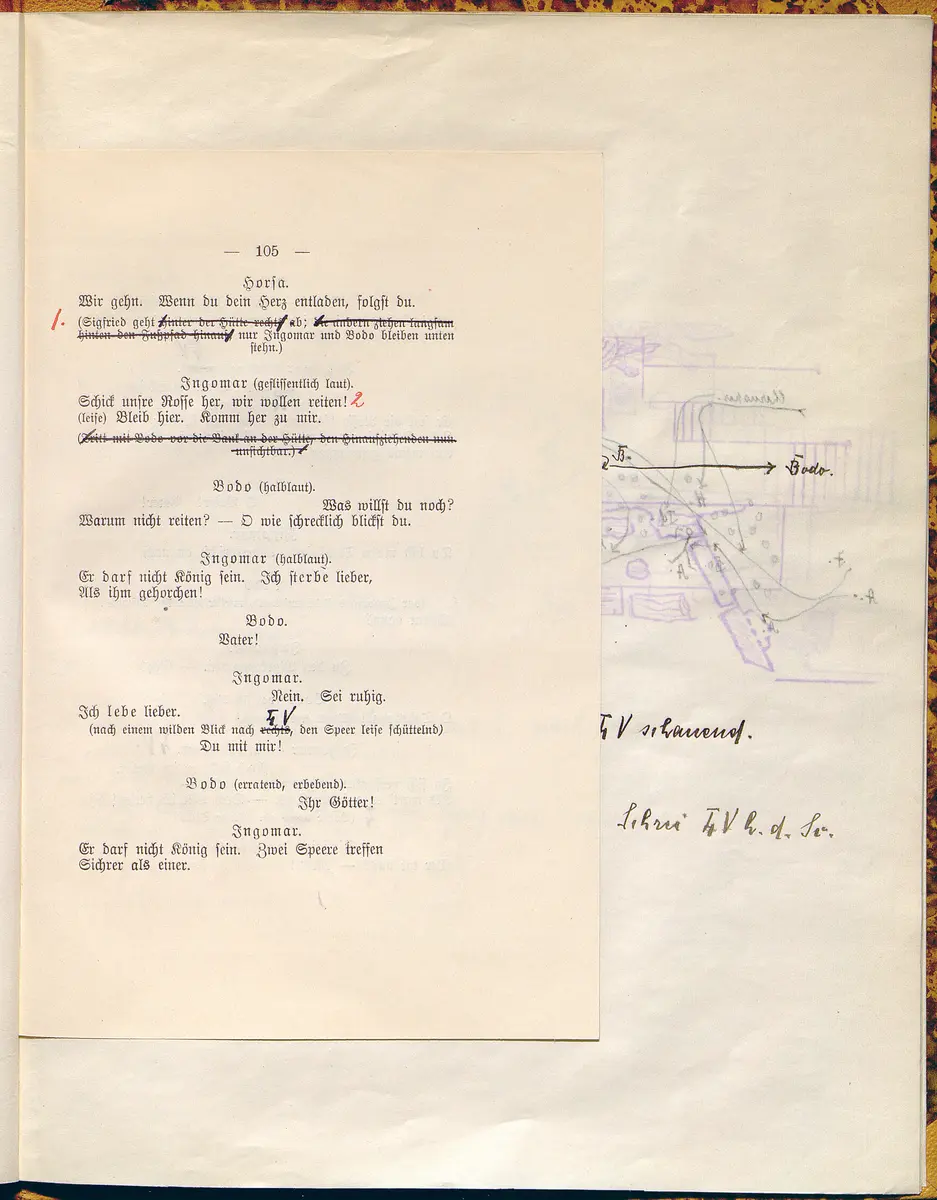 — 105 —
Horsa.
Wir gehn. Wenn du dein Herz entladen, folgst du.
1.
(Sigfried geht hinter der Hütte rechts ab; die andern ziehen langsam
hinten den Fußpfad hinauf, nur Ingomar und Bodo bleiben unten
stehn.)
Ingomar (geflissentlich laut).
Schick unsre Rosse her, wir wollen reiten! 2
(leise) Bleib hier. Komm her zu mir.
(Tritt mit Bodo vor die Bank an der Hütte, den Hinaufziehenden nun
unsichtbar.)
Bodo (halblaut).
Was willst du noch?
Warum nicht reiten? — O wie schrecklich blickst du.
Ingomar (halblaut).
Er darf nicht König sein. Ich sterbe lieber,
Als ihm gehorchen!
Bodo.
Vater!
Ingomar.
Nein. Sei ruhig.
Ich lebe lieber.
V
(nach einem wilden Blick nach rechts, den Speer leise schüttelnd)
Du mit mir!
Bodo (erratend, erbebend).
Ihr Götter!
Ingomar.
Er darf nicht König sein. Zwei Speere treffen
Sichrer als einer.
B.
Bodo.
V schauend.
Schrei V h. d. Sc.